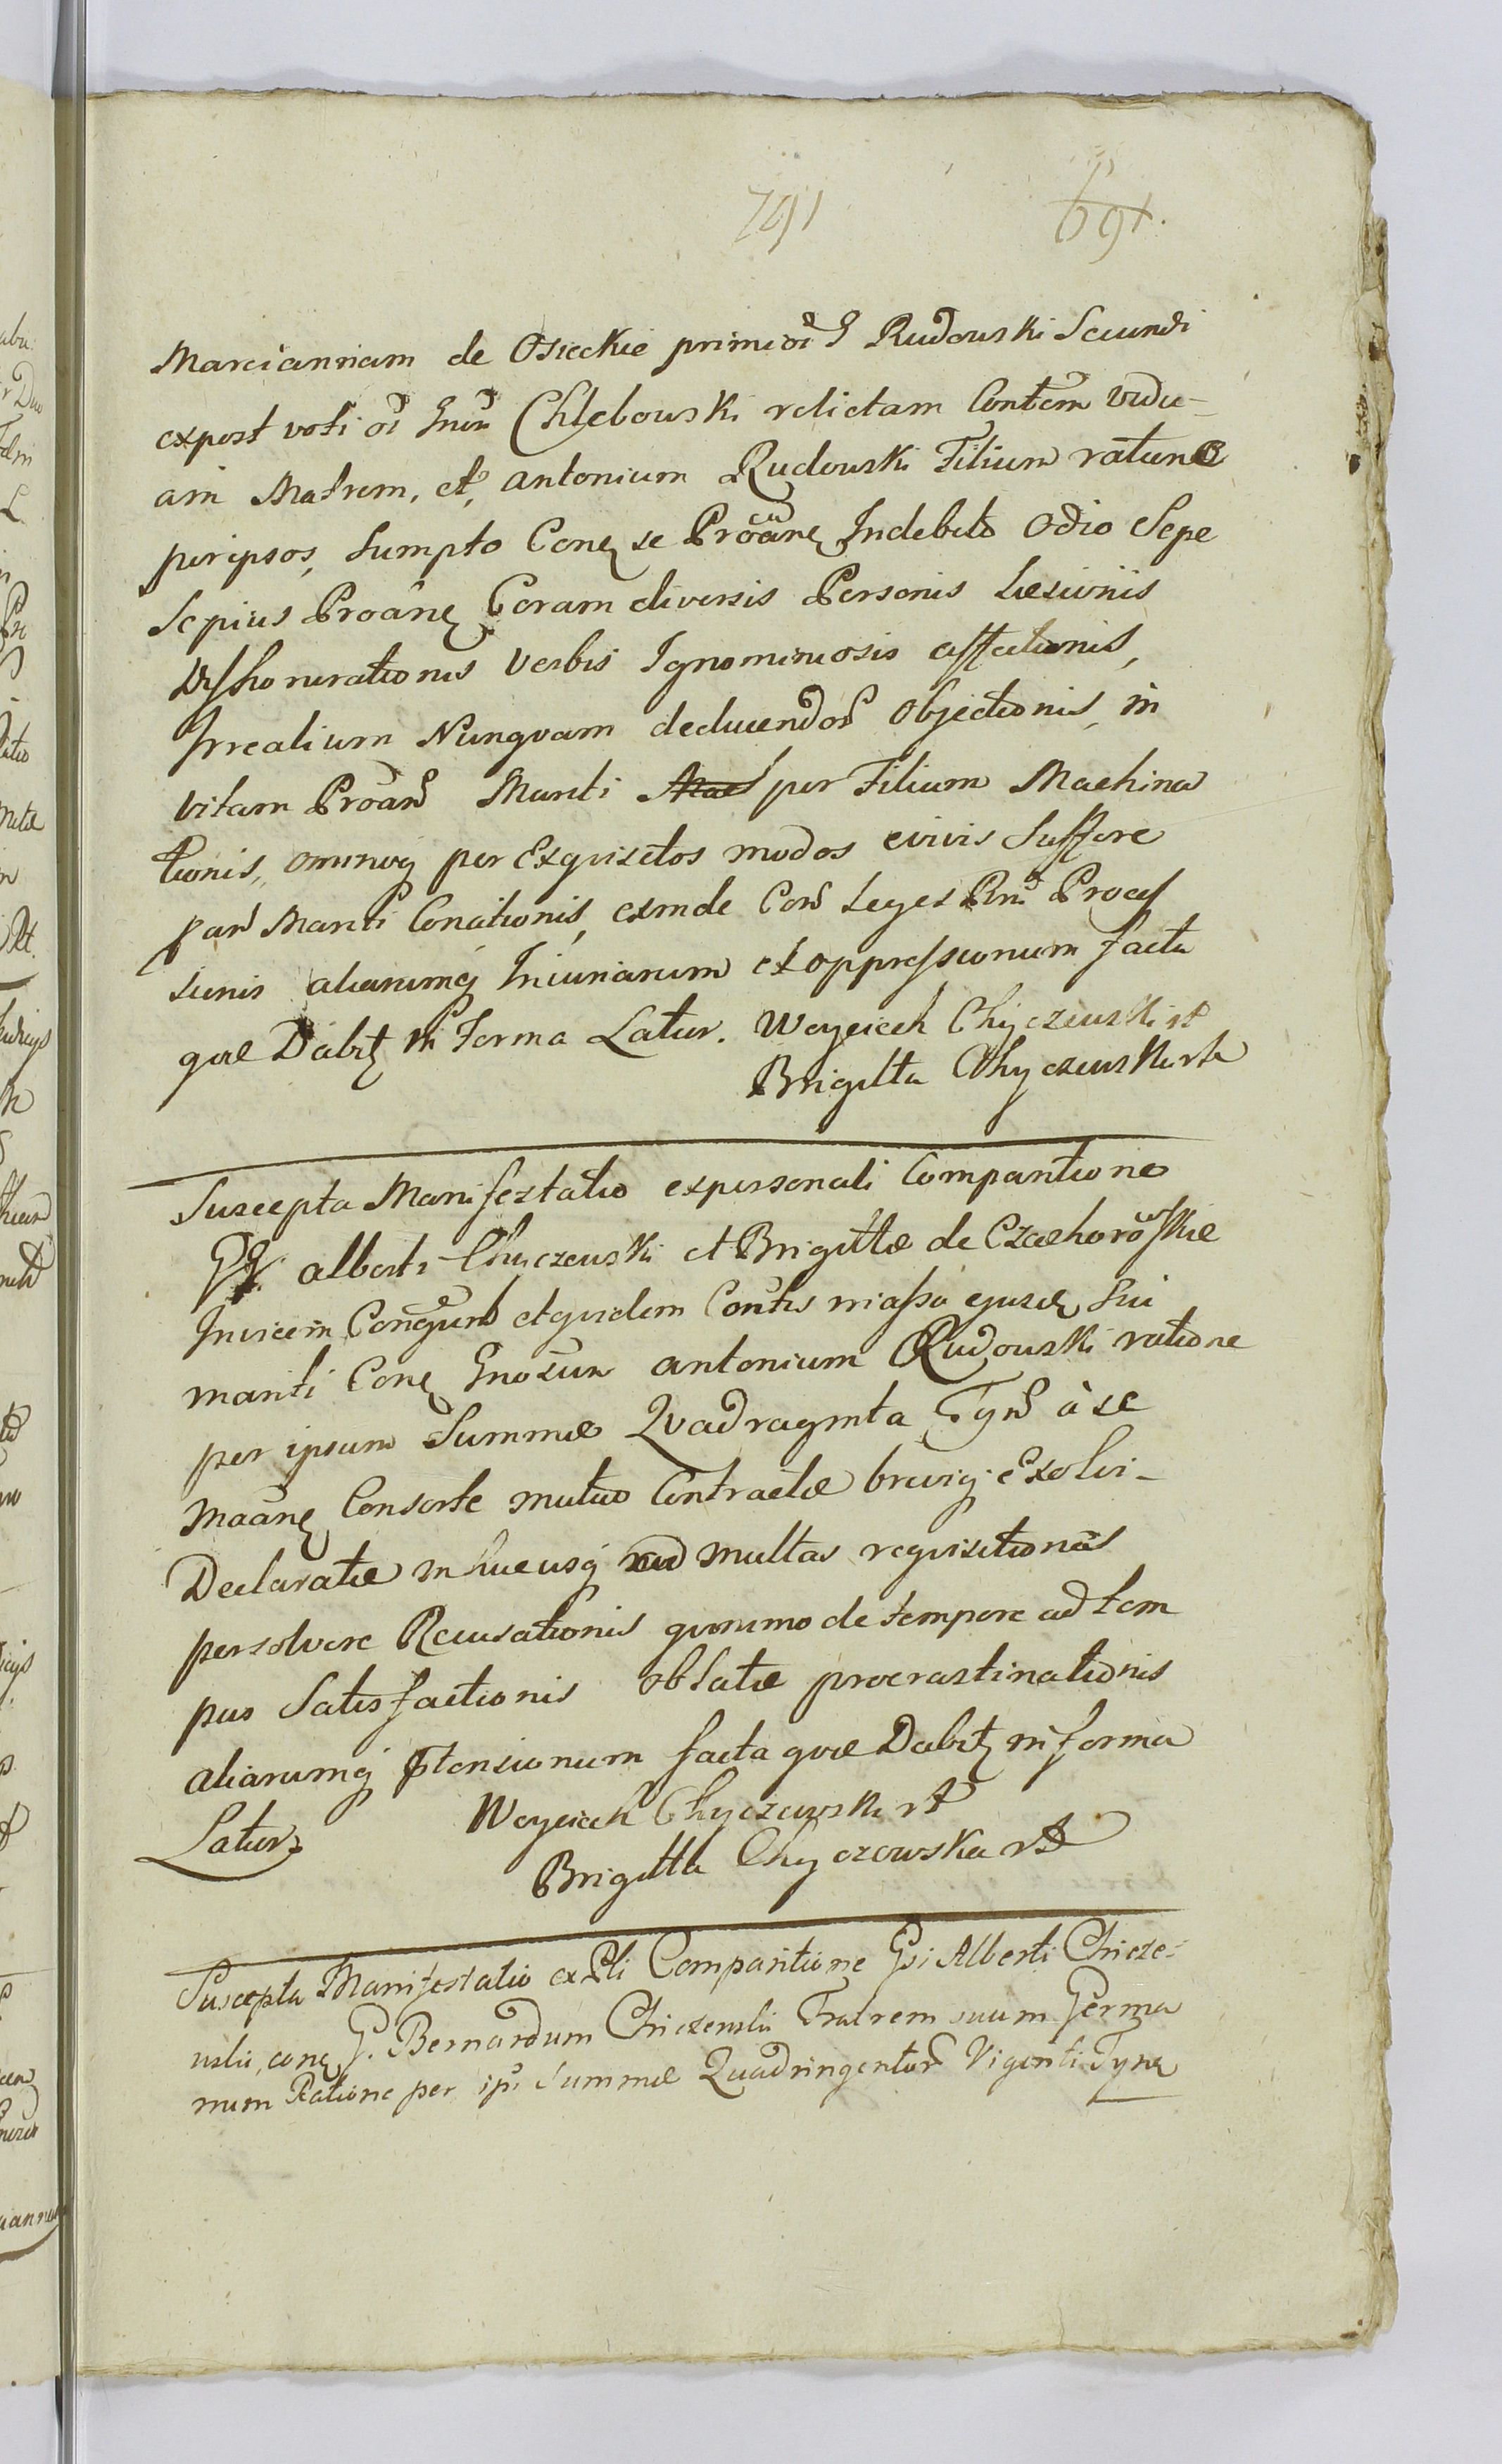 791 691.
Marciannam de Osieckie primi oi G Rudowski Secundi
expost voti oi Gnen Chlebowski relictam Contem vidu-
am Matrem, et, antonium Rudowski Filium ratione
per ipsos, Sumpto Cong se Proãng Indebito Odio Sepe
Sepius Proãng Coram diversis Personis Lesionis
Dishonorationis verbis Ignominiosis affectionis,
Irrealium Nunqvam deducendor Objectionis, in
vitam Proan Mariti per Filium Machina
tionis, omnevq per Exqvisitos modos e vivis Suffere
pan Mariti Conationis, exinde Con Leges Rni Proces
sionis aliarumq Iniuriarum et oppressionum facta
qvæ Dabitz in Forma Latur. Woyciech Chyczewski
Brigitta Chyczewska
Suscepta Manifestatio expersonali Comparitione
GG. alberti Chyczewski et Brigittæ de Czachorowskie
Invicem Congum et qvidem Contis in assa ejusdz Sui
mariti Cong Gnosum antonium Rudowski ratione
per ipsum Summæ Qvadraginta Tyn à se
Maãng Consorte mutuo Contractæ breviq Exolvi-
Declaratæ in hucusq ad multas reqvisitiones
persolvere Recusationis qvinimo de tempore ad tem
pus Satisfactionis oblatæ procrastinationis
aliarumq ptensionum facta qvæ Dabitz in forma
Latur. Woyciech Chyczewski
Brigitta Chyczewska
Suscepta Manifestatio ex Pli Comparitione Gsi Alberti Chicze-
wski, cong G. Bernardum Chiczewski Fratrem suum Germa
num Ratione per ips Summæ Quadringentor Viginti Tynf